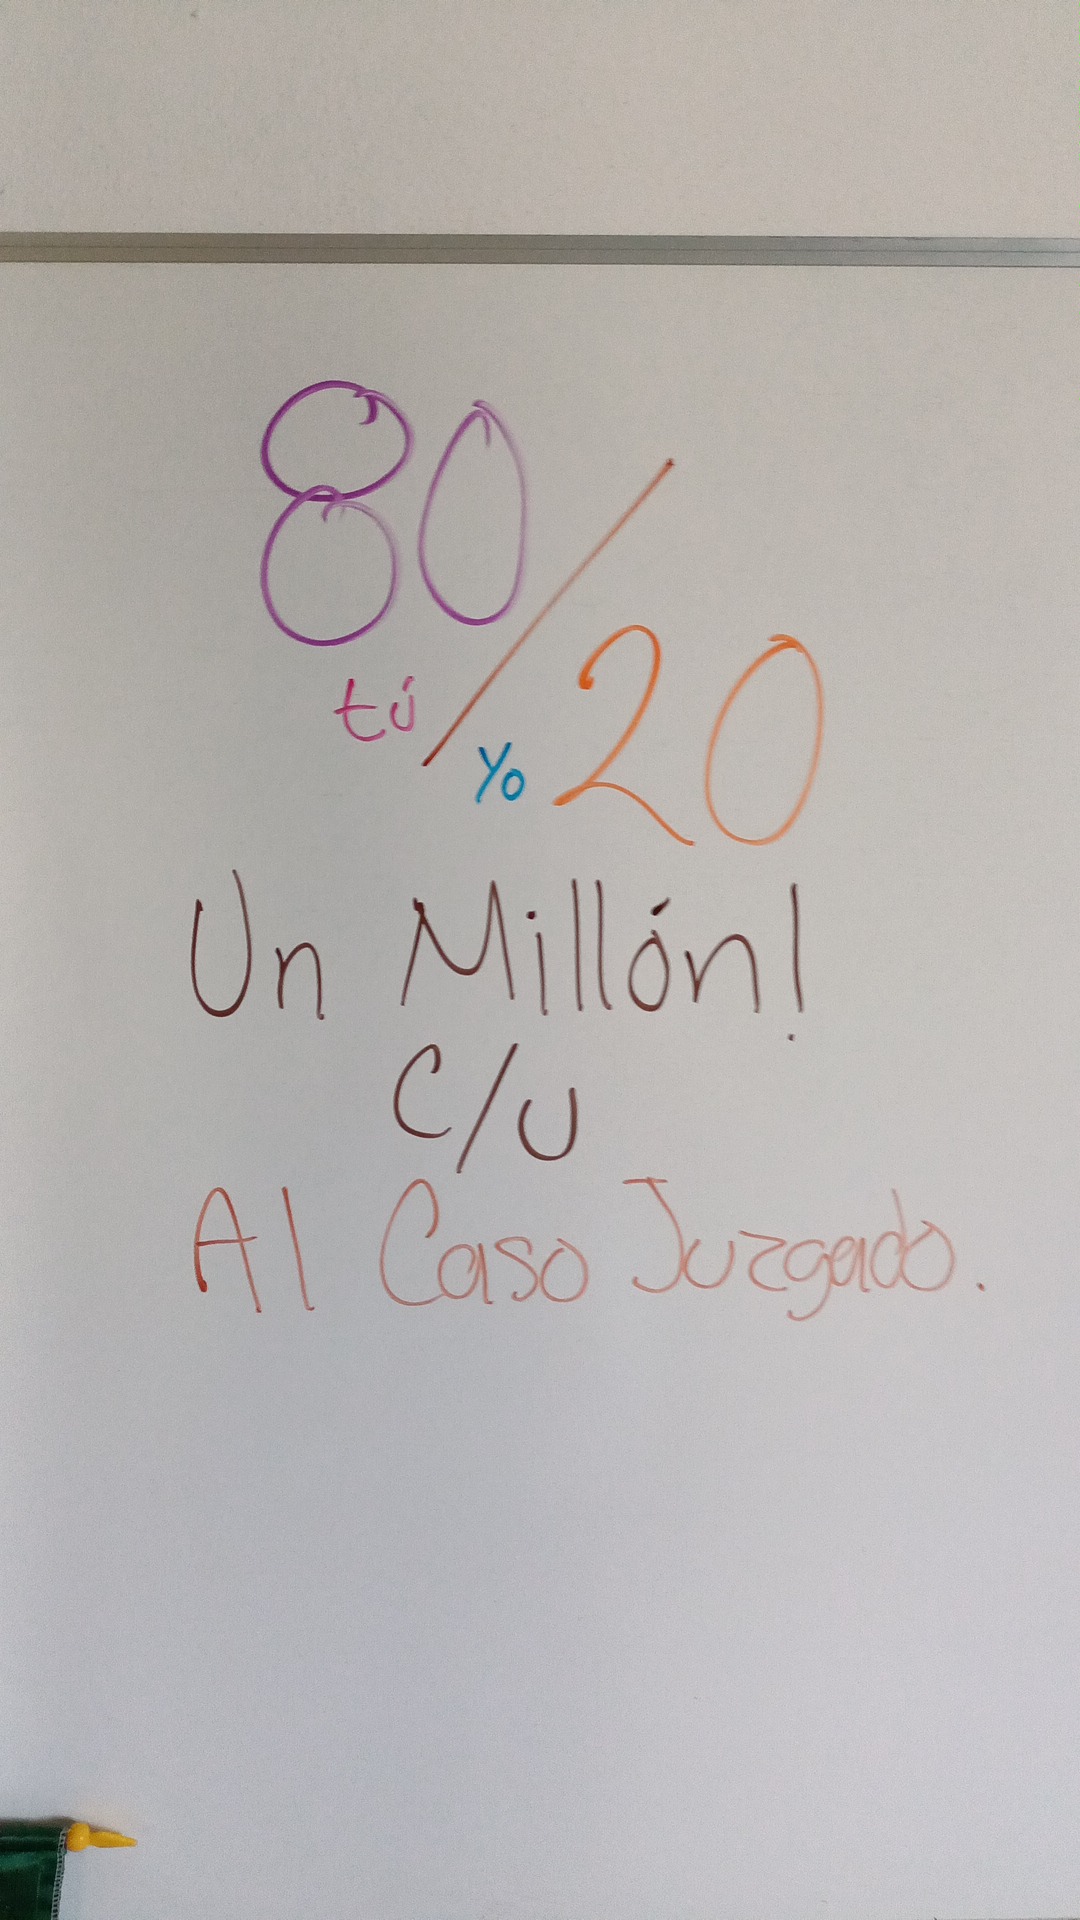 80/20
tú yo
Un Millón!
C/U
Al Caso Juzgado.